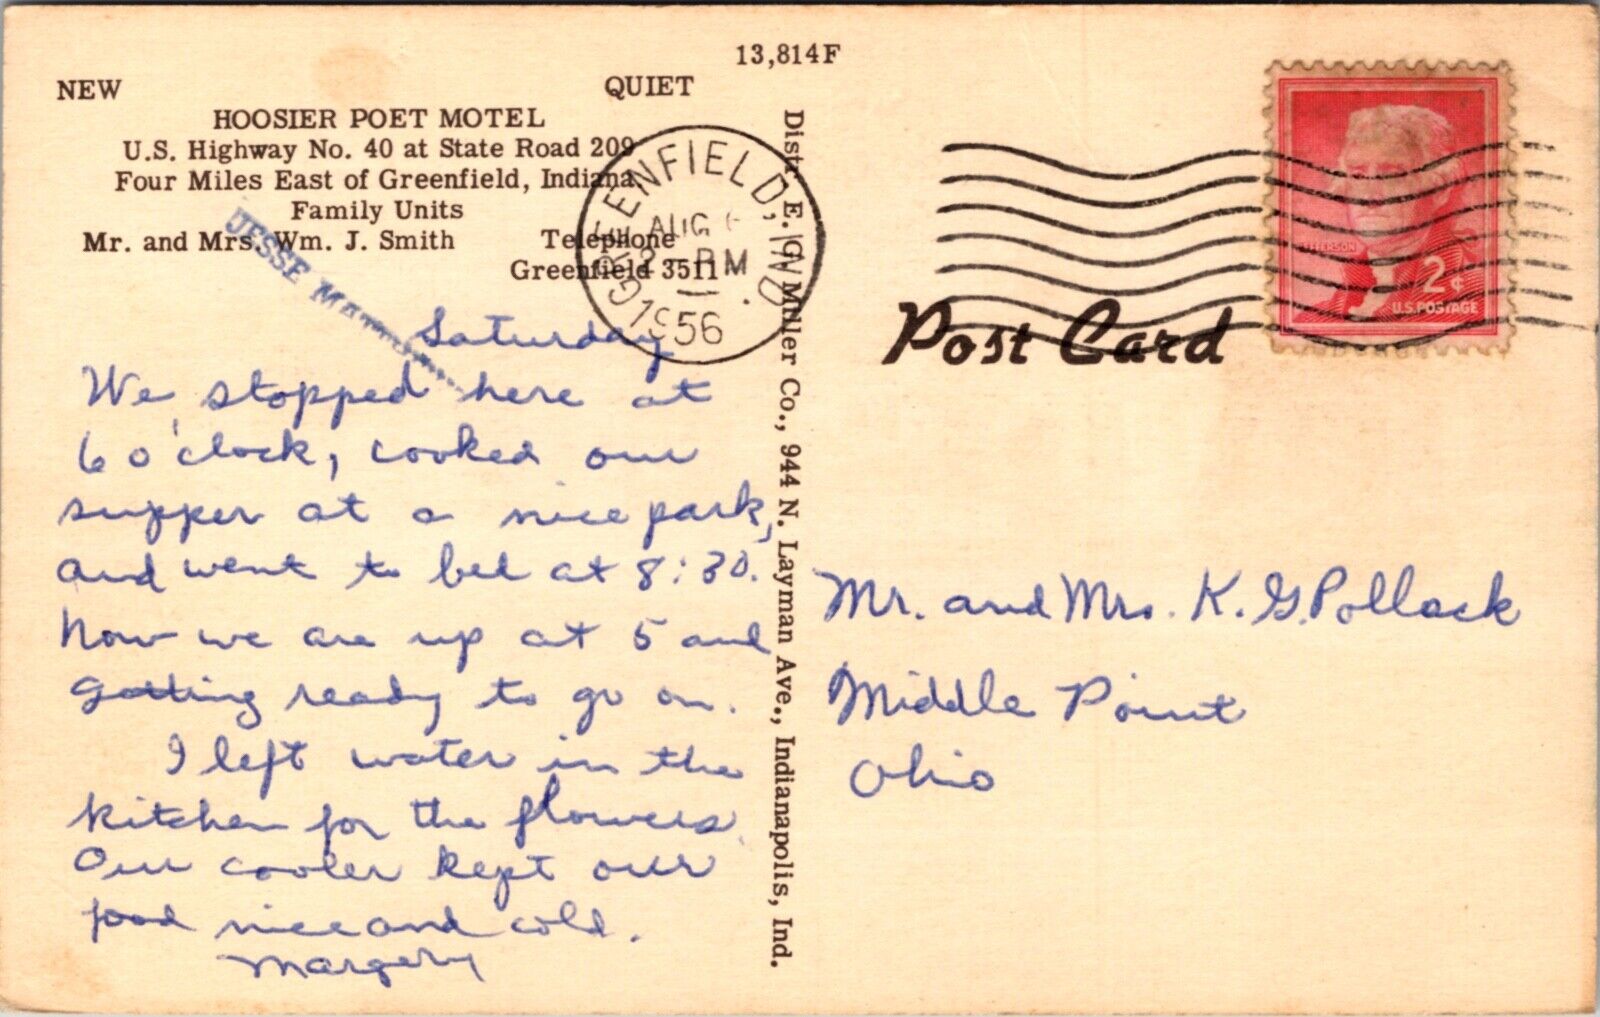 13,814F
NEW QUIET
HOOSIER POET MOTEL
U.S. Highway No. 40 at State Road 209
Four Miles East of Greenfield, Indiana.
Family Units
Mr. and Mrs. Wm. J. Smith Telephone
Greenfield 3511
JESSE
GREENFIELD, IND.
AUG
2 - PM
1956
Saturday
We stopped here at
6 o'clock, cooked our
supper at a nice park,
and went to bed at 8:30.
Now we are up at 5 and
getting ready to go on.
I left water in the
kitchen for the flowers.
Our cooler kept our
food nice and cold.
Margery
Distr. E. G. Miller Co., 944 N. Layman Ave., Indianapolis, Ind.
JEFFERSON
2¢
U.S. POSTAGE
Post Card
Mr. and Mrs. K. G. Pollock
Middle Point
Ohio